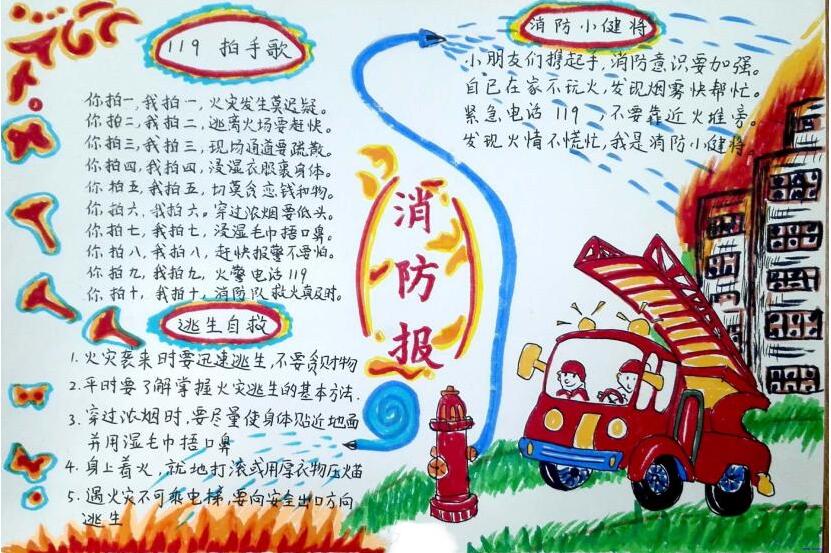 119 拍手歌
你拍一,我拍一,火灾发生莫迟疑。
你拍二,我拍二,逃离火场要赶快。
你拍三,我拍三,现场通道要疏散。
你拍四,我拍四,浸湿衣服裹身体。
你拍五,我拍五,切莫贪恋钱和物。
你拍六,我拍六。穿过浓烟要低头。
你拍七,我拍七,浸湿毛巾捂口鼻。
你拍八,我拍八,赶快报警不要怕。
你拍九,我拍九,火警电话119
你拍十,我拍十,消防队救火真及时。
逃生自救
1. 火灾袭来时要迅速逃生,不要贪财物
2. 平时要了解掌握火灾逃生的基本方法.
3. 穿过浓烟时,要尽量使身体贴近地面
并用湿毛巾捂口鼻
4. 身上着火,就地打滚或用厚衣物压
5. 遇火灾不可乘电梯,要向安全出口方向
逃生
消防报
消防小健将
小朋友们携起手,消防意识要加强。
自己在家不玩火,发现烟雾快帮忙。
紧急电话 119 ,不要靠近火堆旁。
发现火情不慌忙,我是消防小健将